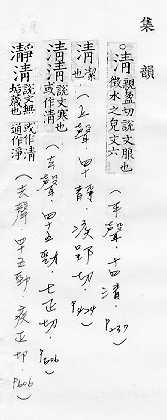 集韻
○清 親盈切說文朖也澂水之皃文六 (平聲.十四清.P237)
清 潔也 (上聲.四十靜.P424)
凊清 說文寒也或作清 (去聲.四十五勁.七正切.P606)
瀞清 說文無垢薉也或作清通作淨 (去聲.四十五勁.疾正切.P606)